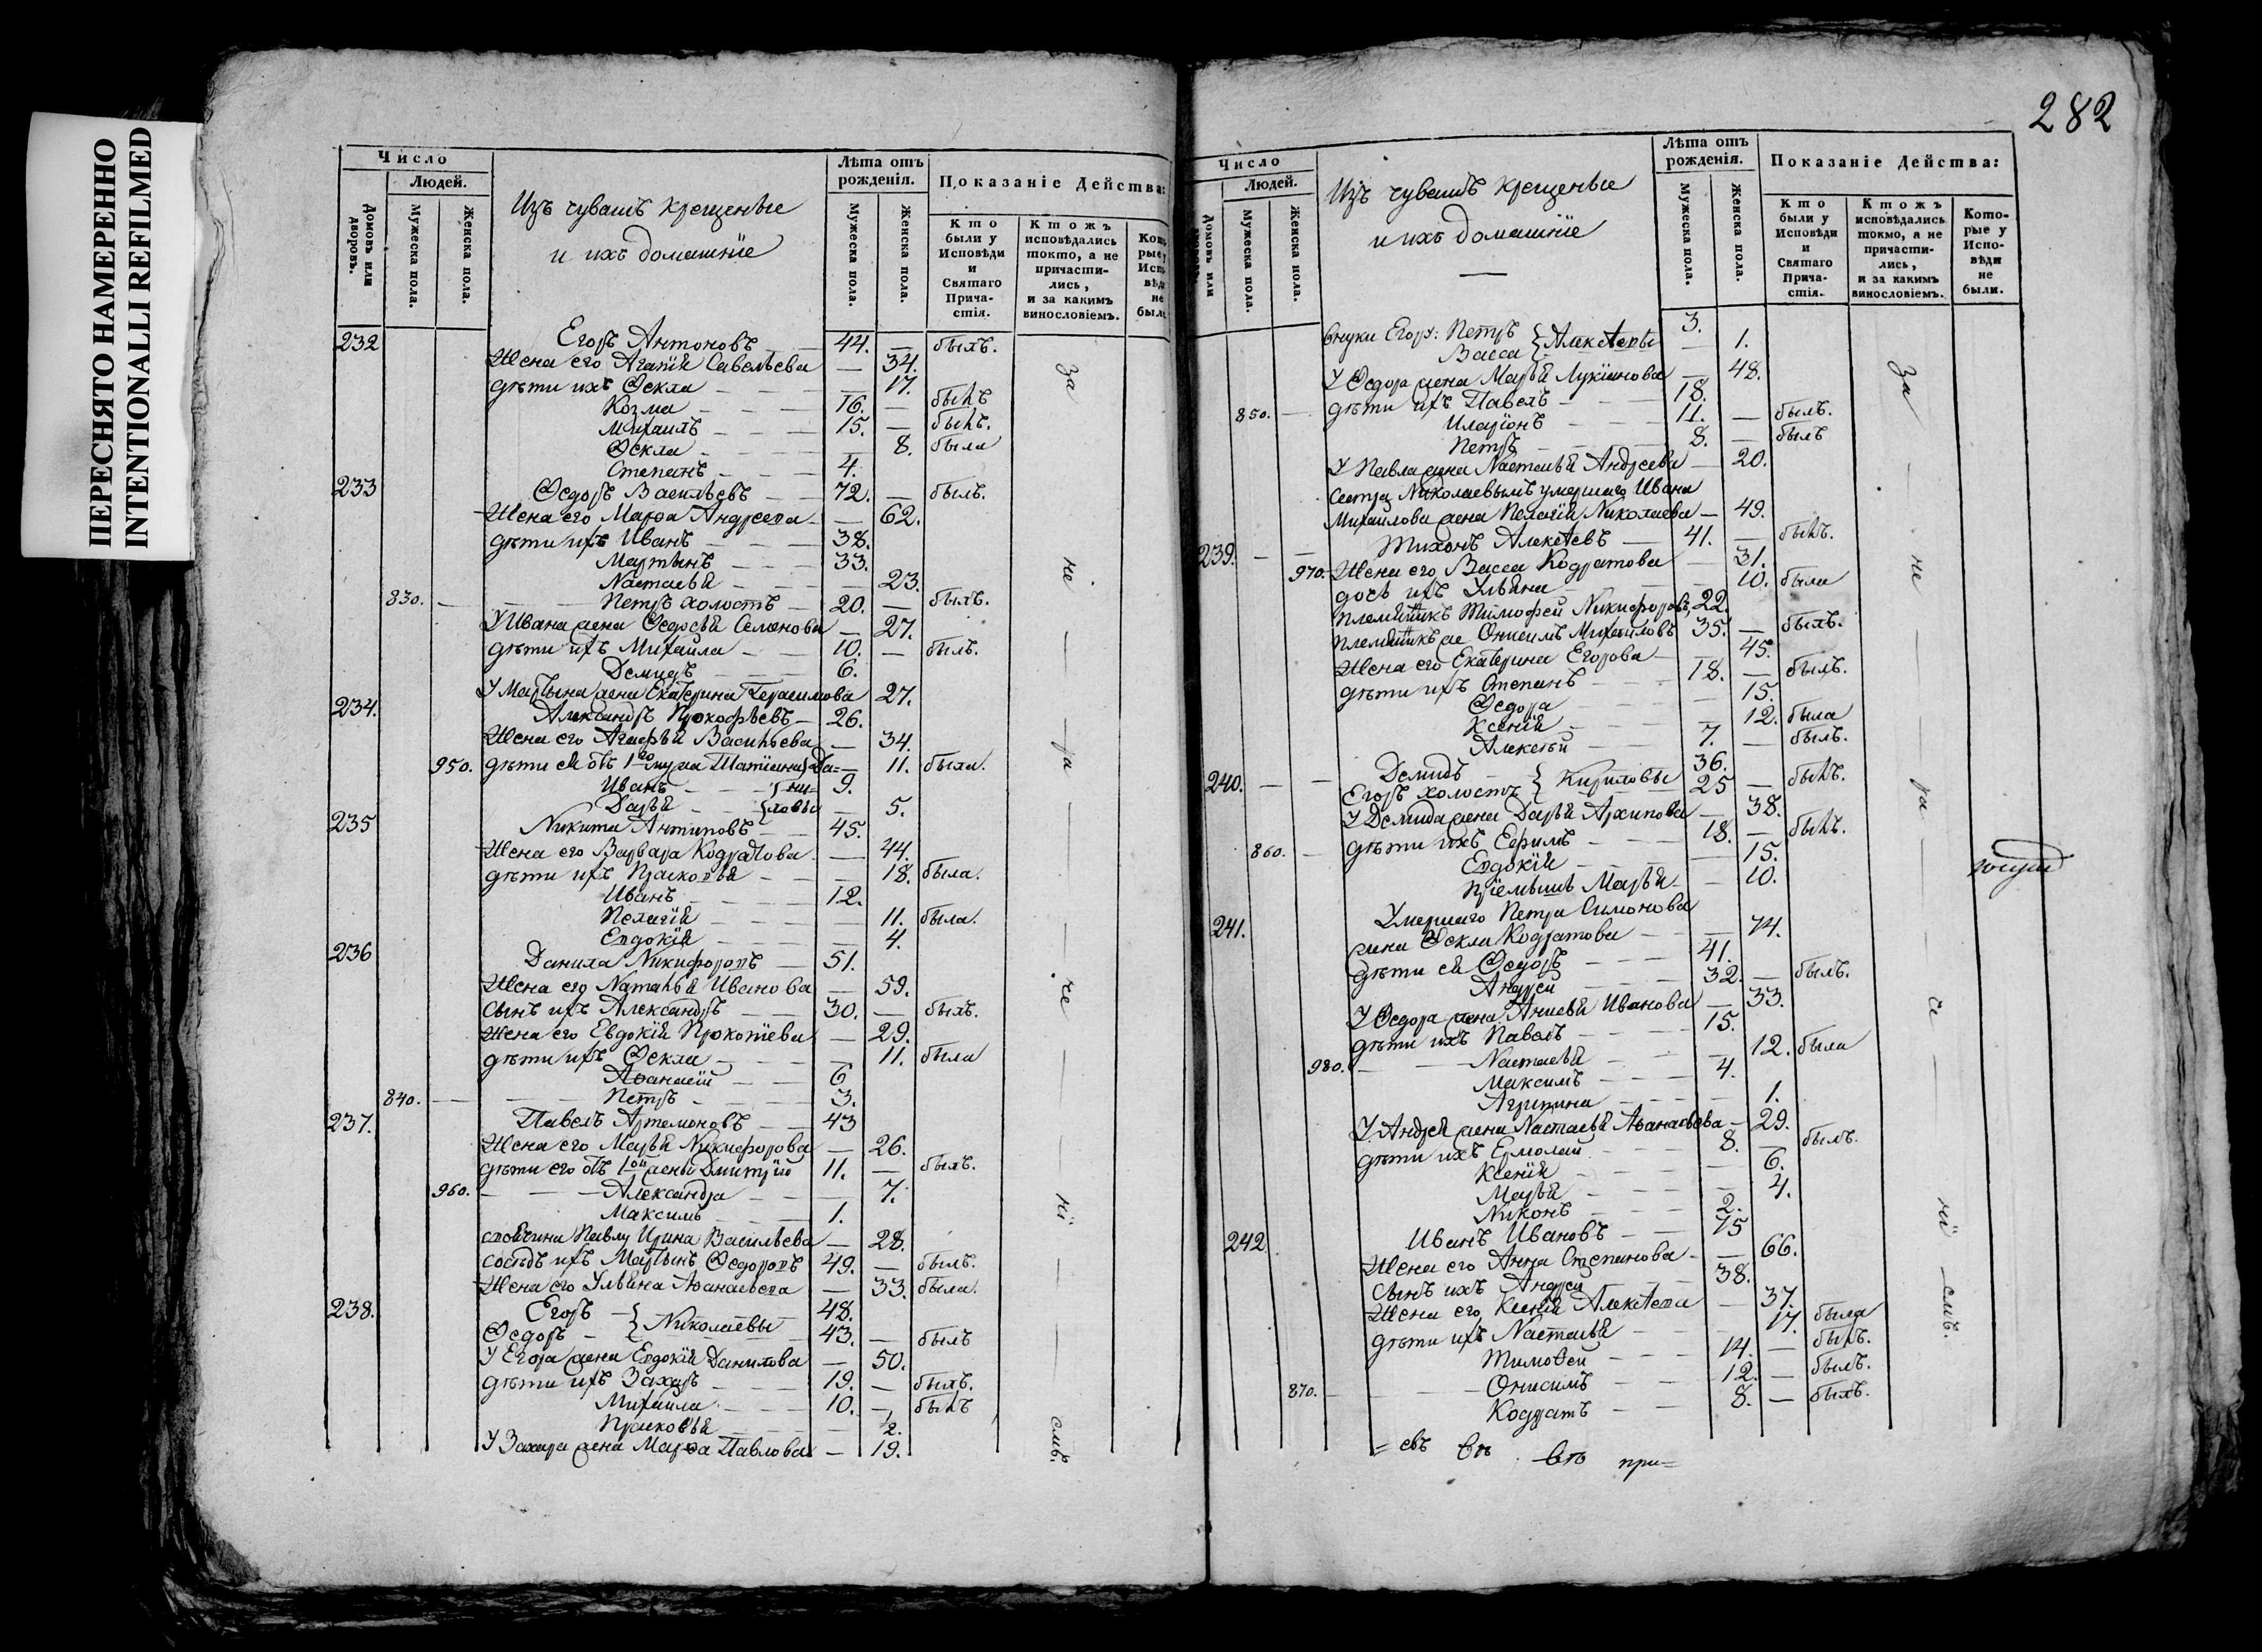 ПЕРЕСНЯТО НАМЕРЕННО
INTENTIONALLI REFILMED
Число
Людей.
Домовъ или дворовъ.
Мужеска пола.
Женска пола.
Изъ чувашъ крещеные
и ихъ домашнїе
Лѣта отъ рожденія.
Мужеска пола.
Женска пола.
Показаніе Действа:
Кто были у Исповѣди и Святаго Прича-стія.
Ктожъ исповѣдались токто, а не причасти-лись, и за какимъ винословіемъ.
232 Егоръ Антоновъ 44. — былъ.
Жена его Агапїя Савельева — 34.
дѣти ихъ Ѳекла — 17.
Козма 16. — былъ
Михаилъ 15. — былъ.
Ѳекла 8. была
Степанъ 4.
233 Ѳедоръ Васильевъ 72. — былъ.
Жена его Марѳа Андреева — 62.
дѣти ихъ Иванъ 38.
Мартынъ 33.
Настасья — 23.
830. Петръ холостъ 20. — былъ.
У Ивана жена Ѳедосья Семенова — 27.
дѣти ихъ Михайла 10. — былъ.
Демидъ 6.
У Мартына жена Екатерина Герасимова 27.
234. Александръ Прокофьевъ 26.
Жена его Агафья Васильева — 34.
950. дѣти ея отъ 1го мужа Татїана } Да= — 11. была.
Иванъ } ни= 9.
Дарья } ловы — 5.
235 Никита Антиповъ 45.
Жена его Варвара Кодратова — 44.
дѣти ихъ Прасковья — 18. была.
Иванъ 12.
Пелагїя 11. была.
Евдокїя — 4.
236 Данила Никифоровъ 51.
Жена его Наталья Иванова — 59.
Сынъ ихъ Александръ 30. — былъ.
Жена его Евдокїя Прокопїева — 29.
дѣти ихъ Ѳекла — 11. была
Аѳанасїй 6
840. Петръ 3.
237. Павелъ Артемоновъ 43
Жена его Марья Никифорова — 26.
дѣти его отъ 1ой жены Дмитрїй 11. — былъ.
960. Александра — 7.
Максимъ 1.
Павлу Ирина Васильева — 28.
сосѣдъ ихъ Мартынъ Ѳедоровъ 49. — былъ.
Жена его Ульяна Аѳанасьева — 33. была.
238. Егоръ } Николаевы 48.
Ѳедоръ 43. — былъ
У Егора жена Евдокїя Данилова — 50.
дѣти ихъ Захаръ 19. — былъ.
Михайла 10. — былъ
Прасковья 2.
У Захара жена Марѳа Павлова — 19.
за — не — ра — че — нї — емъ.
282
Число
Людей.
Домовъ или
Мужеска пола.
Женска пола.
Изъ чувашъ крещеные
и ихъ домашнїе
Лѣта отъ рожденія.
Мужеска пола.
Женска пола.
Показаніе Действа:
Кто были у Исповѣди и Святаго Прича-стія.
Ктожъ исповѣдались токмо, а не причасти-лись, и за какимъ винословіемъ.
Кото-рые у Испо-вѣди не были.
внуки Егору: Петръ } Алексѣевы 3.
Васса — 1.
У Ѳедора жена Марья Лукїанова — 48.
850. дѣти ихъ Павелъ 18.
Иларїонъ 11. — былъ.
Петръ 8. — былъ
У Павла жена Настасья Андреева — 20.
Сестра Николаевымъ умершаго Ивана
Михайлова жена Пелагїя Николаева — 49.
239. Тихонъ Алексѣевъ 41. — былъ.
970. Жена его Васса Кодратова — 31.
дочь ихъ Ульяна — 10. была
племянникъ Тимофей Никифоровъ 22.
племянникъ же Онисимъ Михайловъ 35. — былъ.
Жена его Екатерина Егорова — 45.
дѣти ихъ Степанъ 18. — былъ.
Ѳедора — 15.
Ксенїя — 12. была
Алексѣй 7. — былъ.
240. Демидъ } Кириловы 36.
Егоръ холостъ 25 — былъ.
У Демида жена Дарья Архипова — 38.
860. дѣти ихъ Ефимъ 18. — былъ.
Евдокїя — 15.
прїемышъ Марья — 10.
241. Умершаго Петра Симонова
жена Ѳекла Кодратова — 74.
дѣти ея Ѳедоръ 41.
Андрей 32. — былъ.
У Ѳедора жена Анисья Иванова — 33.
дѣти ихъ Павелъ 15.
980. Настасья — 12. была
Максимъ 4.
Агрипина — 1.
У Андрея жена Настасья Аѳанасьева — 29.
дѣти ихъ Ермолай 8. — былъ.
Ксенїя — 6.
Марья — 4.
Никонъ 2.
242 Иванъ Ивановъ 75
Жена его Анна Степанова — 66.
Сынъ ихъ Андрей 38.
Жена его Ксенїя Алексѣева — 37.
дѣти ихъ Настасья 17. была
Тимоѳей 14. — былъ.
870. Онисимъ 12. — былъ.
Кодратъ 8. — былъ.
за — не — ра — че — нї — емъ.